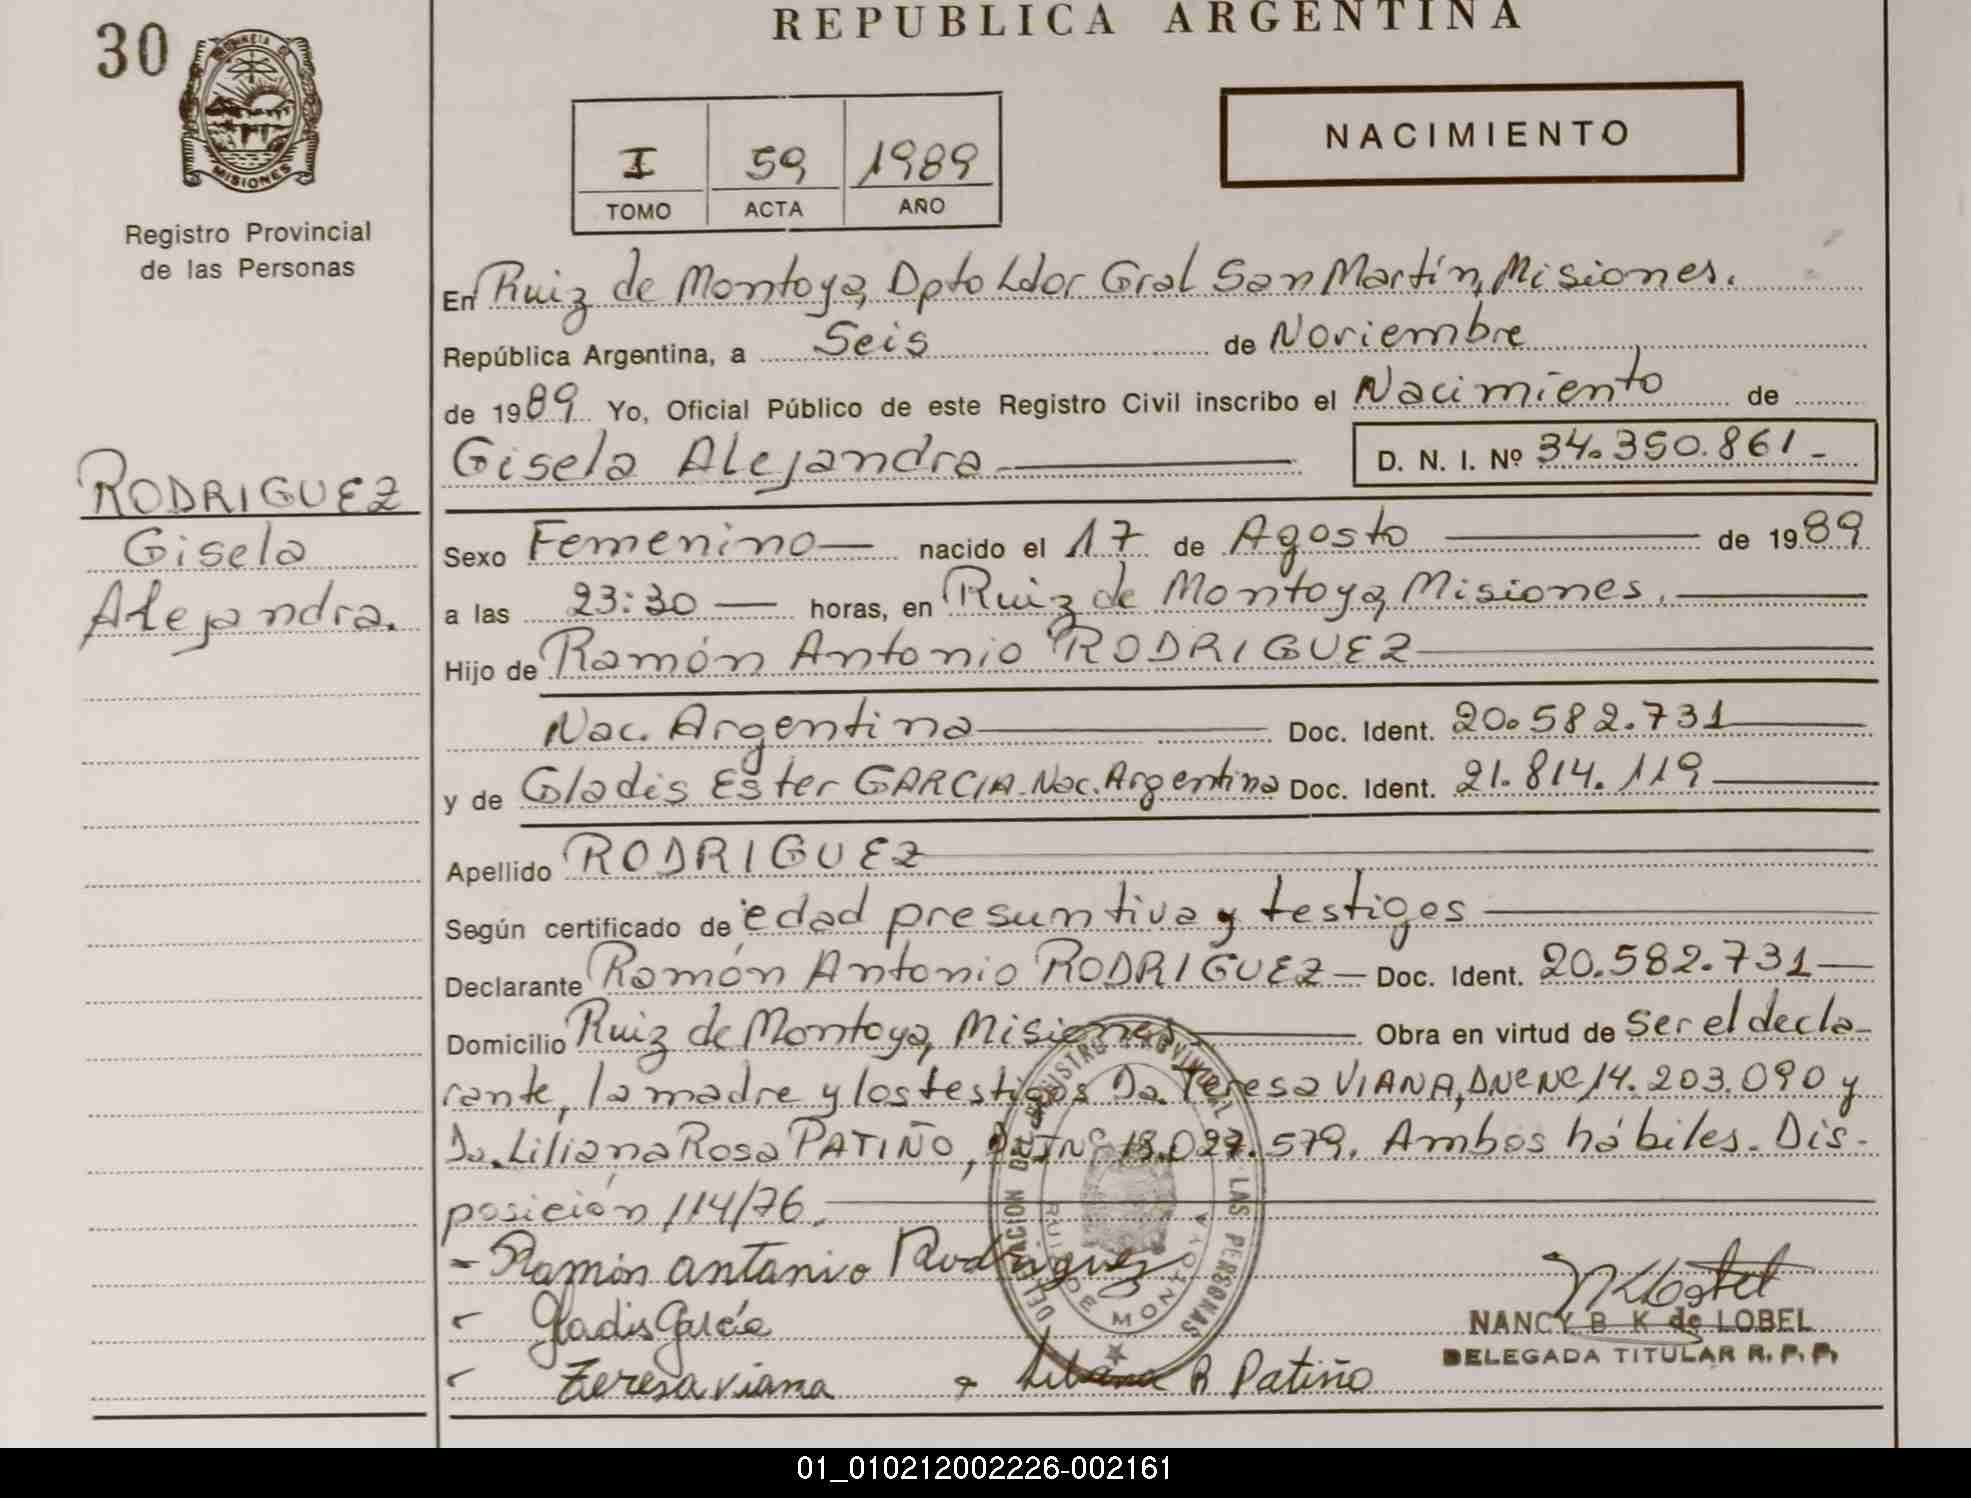 30
REPUBLICA ARGENTINA
PROVINCIA DE
MISIONES
Registro Provincial
de las Personas
I 59 1989
TOMO ACTA AÑO
NACIMIENTO
En Ruiz de Montoya, Dpto Ldor Gral San Martín, Misiones.
República Argentina, a Seis de Noviembre
de 1989 Yo, Oficial Público de este Registro Civil inscribo el Nacimiento de
Gisela Alejandra D. N. I. Nº 34.350.861-
RODRIGUEZ
Gisela
Alejandra.
Sexo Femenino nacido el 17 de Agosto de 1989
a las 23:30 horas, en Ruiz de Montoya, Misiones.
Hijo de Ramón Antonio RODRIGUEZ
Nac. Argentina Doc. Ident. 20.582.731
y de Gladis Ester GARCIA. Nac. Argentina Doc. Ident. 21.814.119
Apellido RODRIGUEZ
Según certificado de edad presuntiva y testigos
Declarante Ramón Antonio RODRIGUEZ Doc. Ident. 20.582.731
Domicilio Ruiz de Montoya, Misiones Obra en virtud de ser el decla-
rante, la madre y los testigos Da. Teresa VIANA, 14.203.090 y
Da. Liliana Rosa PATIÑO, 18.027.579. Ambos hábiles. Dis-
posición 114/76.
- Ramón antonio Rodriguez
- Gladis García
- Teresa viana
Liliana R Patiño
DELEGACION DEL REGISTRO PROVINCIAL DE LAS PERSONAS
RUIZ DE MONTOYA
NANCY B. K. de LOBEL
DELEGADA TITULAR R. P. P.
01_010212002226-002161